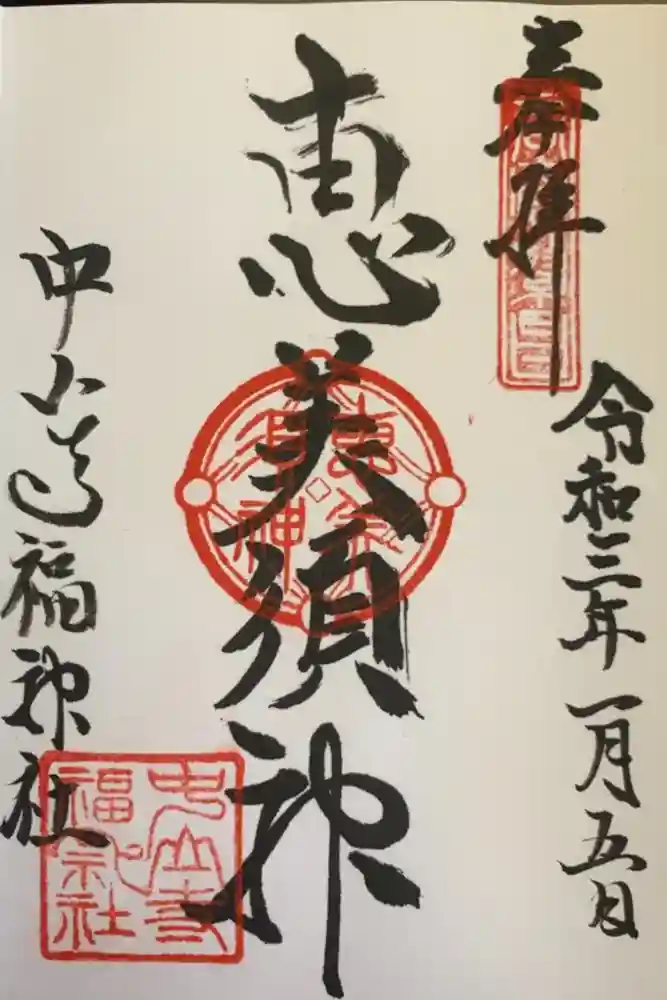 奉拝
令和三年一月五日
恵美須神
恵美
須神
福神社
福神社